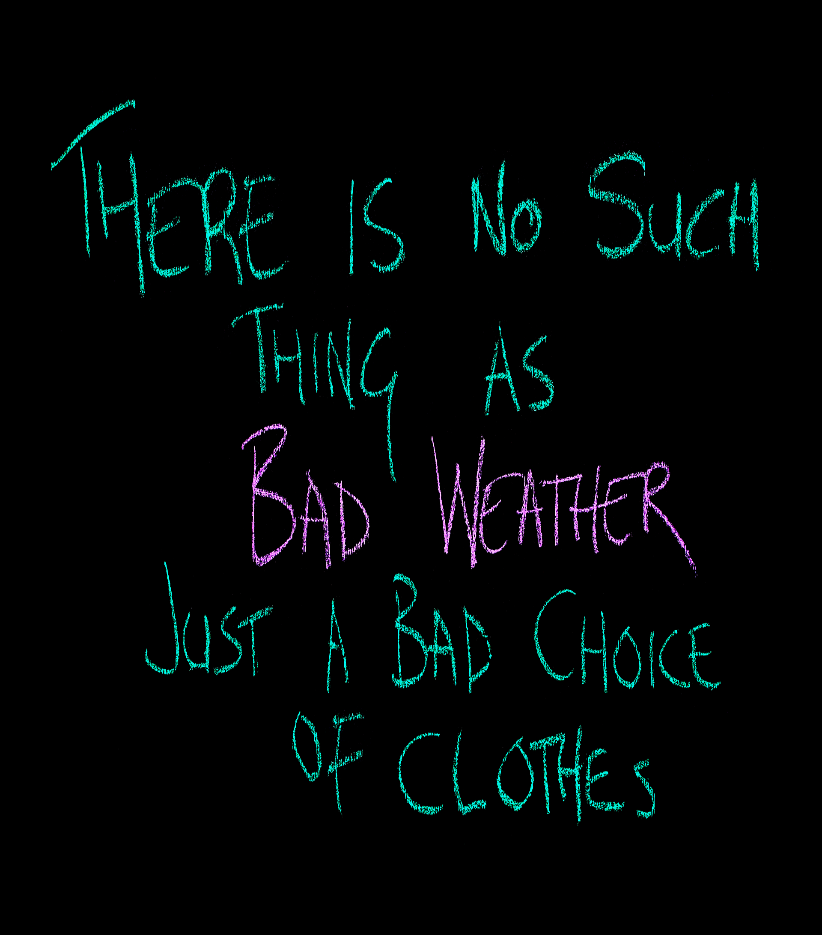 There is No Such
Thing as
Bad Weather
Just a Bad Choice
of Clothes